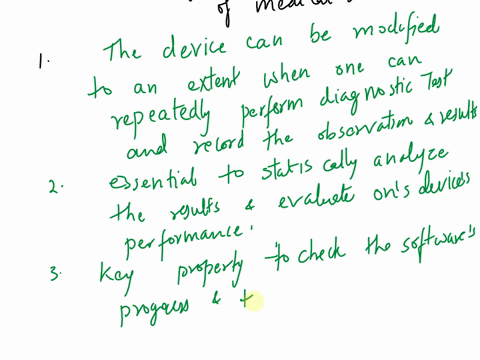 of medical
1. The device can be modified
to an extent when one can
repeatedly perform diagnostic Test
and record the observation & results
2. essential to statiscally analyze
the results & evaluate on's device's
performance.
3. Key property to check the software's
progress & t